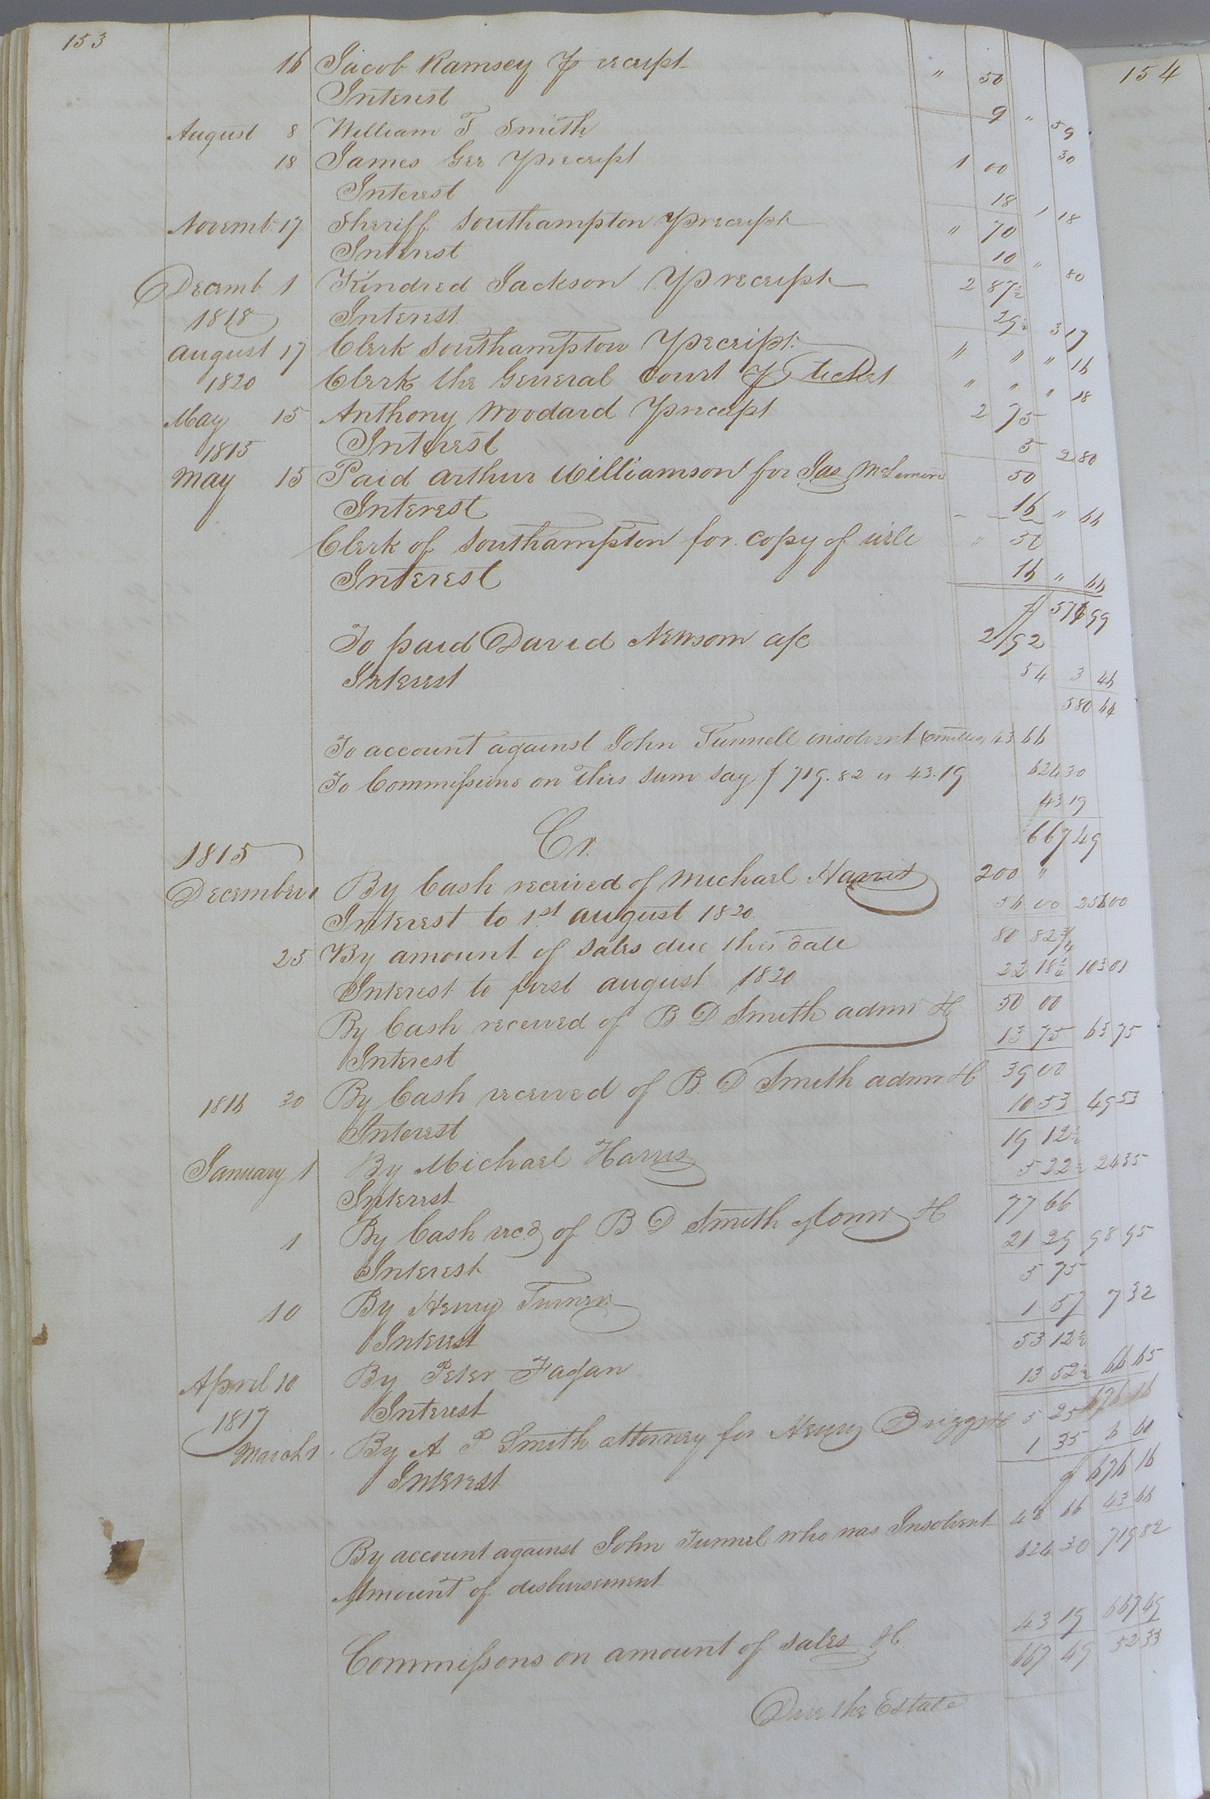 153
154
16 Jacob Ramsey p receipt " 50
Interest 9 " 59
August 8 William T Smith 30
18 James Gee p receipt 1 00
Interest 18 1 18
Novemb 17 Sheriff Southampton p receipt " 70
Interest 10 " 80
Decemb 1 Kindred Jackson p receipt 2 87½
1818 Interest 29½ 3 17
August 17 Clerk Southampton p receipt " " " 16
1820 Clerk the General Court p ticket " " " 18
May 15 Anthony Woodard p receipt 2 75
1815 Interest 5 2 80
May 15 Paid Arthur Williamson for Jas McLemore 50
Interest 16 " 66
Clerk of Southampton for copy of will " 50
Interest 16 " 66
$ 576 99
To paid David Newsom a/c 2 92
Interest 54 3 46
580 64
To account against John Tunnell insolvent 43 66
To Commissions on this sum say $ 719.82 is 43.19 624 30
43 19
667 49
Cr.
1815
December 1 By Cash received of Michael Harris 200 "
Interest to 1st august 1820 56 00 256 00
25 By amount of sales due this date 80 82¾
Interest to first august 1820 22 18½ 103 01
By Cash received of B D Smith admr H 50 00
Interest 13 75 63 75
1816 30 By Cash received of B. D Smith admr H 39 00
Interest 10 53 49 53
January 1 By Michael Harris 19 12½
Interest 5 22½ 24 35
1 By Cash recd of B D Smith admr H 77 66
Interest 21 29 98 95
10 By Henry Turner 5 75
Interest 1 57 7 32
April 10 By Peter Fagan 53 12½
1817 Interest 13 52½ 66 65
March 1 By A P Smith attorney for Henry Briggs 5 25 676 16
Interest 1 35 6 60
$ 676 16
By account against John Tunnel who was Insolvent 48 66 43 66
Amount of disbursement 624 30 719 82
Commissions on amount of sales H 43 19 667 49
667 49 52 33
Due the Estate